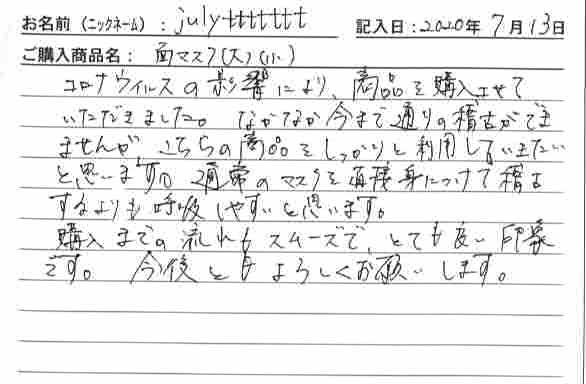 お名前（ニックネーム）：julyttttttt 記入日：2020年7月13日
ご購入商品名：面マスク(大)(小)
コロナウィルスの影響により、商品を購入させて
いただきました。なかなか今まで通りの稽古ができ
ませんが、こちらの商品をしっかりと利用していきたい
と思います。通常のマスクを直接身につけて稽古
するよりも呼吸しやすいと思います。
購入までの流れもスムーズで、とても良い印象
です。今後ともよろしくお願いします。